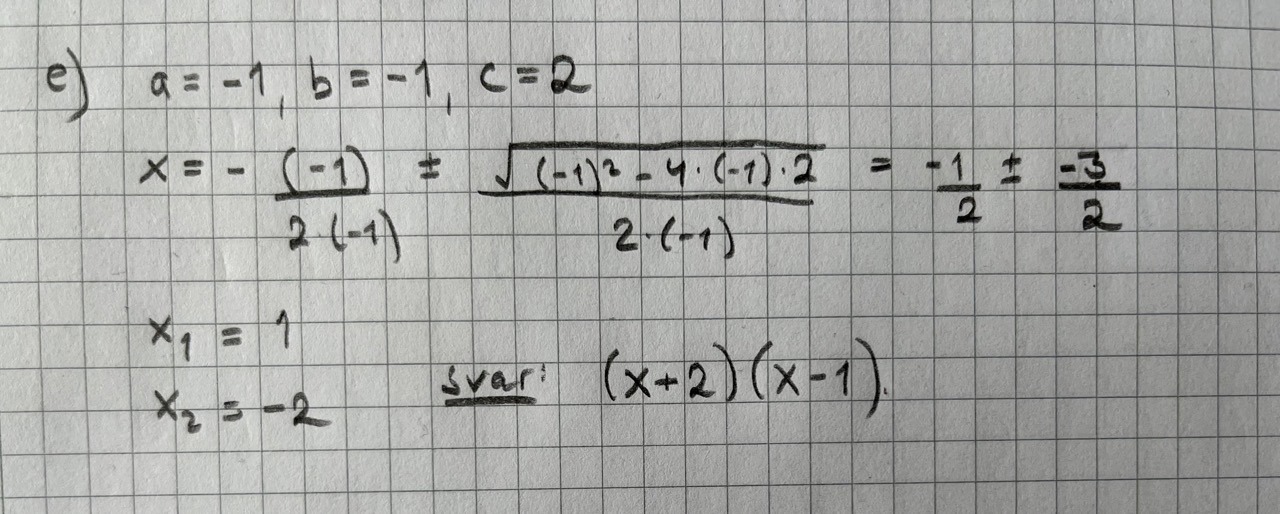 e) a = -1, b = -1, c = 2
x = - (-1)/(2·(-1)) ± √((-1)² - 4·(-1)·2)/(2·(-1)) = -1/2 ± -3/2
x₁ = 1
x₂ = -2 svar: (x+2)(x-1).